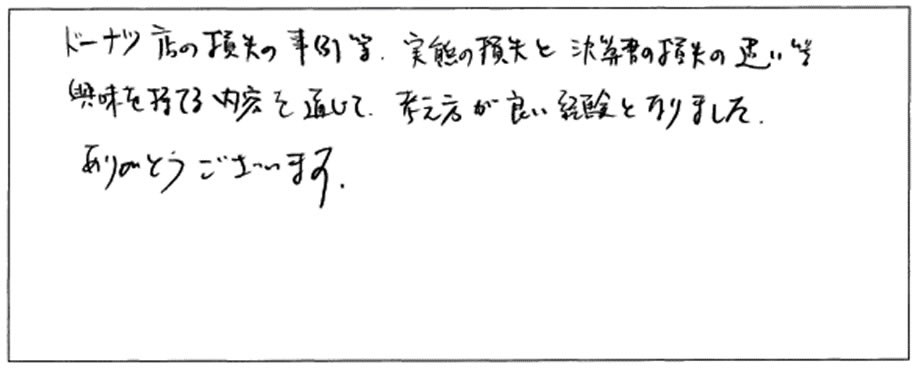 ドーナツ店の損失の事例等、実態の損失と決算書の損失の違い等
興味を持てる内容を通じて、考え方が良い経験となりました。
ありがとうございます。